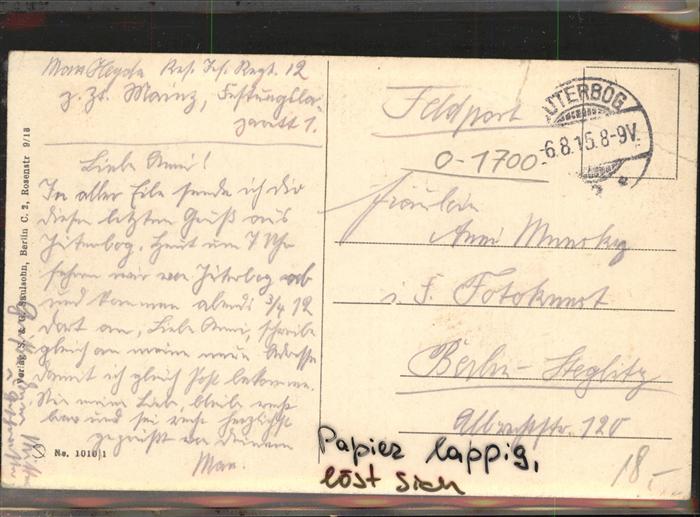 Max Heyde Res. Inf. Regt. 12
z. Zt. Mainz, Festungsla-
zarett 1.
Liebe Anni!
In aller Eile sende ich dir
diesen letzten Gruß aus
Jüterbog. Heut um 7 Uhr
fahren wir von Jüterbog ab
und kommen abends 3/4 12
dort an, Liebe Anni, schreibe
gleich an meine neue Adresse
damit ich gleich Post bekomme.
meine Liebe, bleibe recht
brav und sei recht herzlichst
gegrüßt von deinem
Max.
Verlag S. & G. Saulsohn, Berlin C. 2, Rosenstr 9/13
No. 1010/1
Feldpost
0-1700
JÜTERBOG
-6.8.15.8-9V.
Fräulein
Anni
i. F. Fotokunst
Berlin-Steglitz
Albrechtstr. 120
Papier lappig,
löst sich
18,-